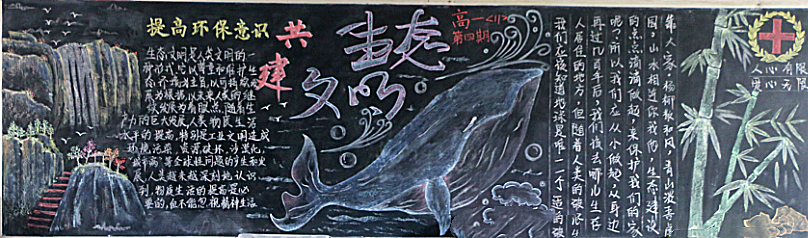 提高环保意识
共建
生态
文明
高一<11>
第四期
生态文明是人类文明的一
种形式，它以尊重和维护生
态环境为主旨，以可持续发
展为根据，以未来人类的继
续发展为着眼点。随着生
产力的巨大发展人类物质生活
水平的提高，特别是工业文明造成
环境污染，资源破坏，沙漠化，
"城市病"等全球性问题的产生和发
展，人类越来越深刻地认识
到，物质生活的提高是必
要的，但不能忽视精神生活
靠大家，杨柳
和风，青山
园，山水相
我们，生态建设
的点点滴滴做起，来保护我们的家
呢？所以我们应从小做起，从身边
再过几百年后，我们该去哪儿生存
人居住的地方，但随着人类的破坏
我们应该知道地球是唯一一个适
人心有限
爱心无限